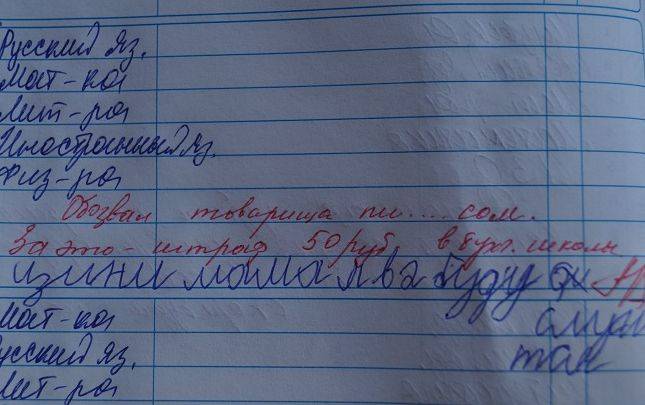 Русский яз.
Мат-ка
Лит-ра
Иностранный яз.
Физ-ра
Обозвал товарища пи....сом.
За это - штраф 50 руб. в бухг. школы
изини мама я
буду
Мат-ка
так
Русский яз.
Лит-ра